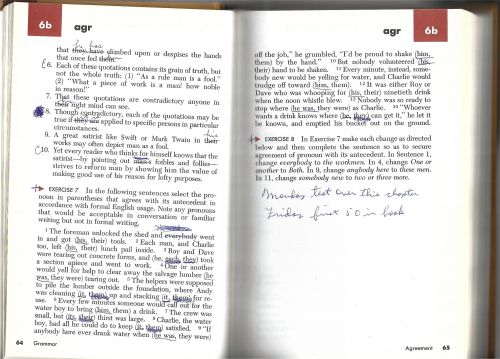 6b
agr
he has
that they have climbed upon or despises the hands
that once fed them.
6. Each of these quotations contains its grain of truth, but
not the whole truth: (1) "As a rule man is a fool."
(2) "What a piece of work is a man! how noble
in reason!"
7. That these quotations are contradictory anyone in
their right mind can see.
8. Though contradictory, each of the quotations may be
true if they are applied to specific persons in particular
circumstances.
his
9. A great satirist like Swift or Mark Twain in their
works may often depict man as a fool.
C 10. Yet every reader who thinks for himself knows that the
satirist—by pointing out man's foibles and follies—
strives to reform man by showing him the value of
making good use of his reason for lofty purposes.
EXERCISE 7 In the following sentences select the pro-
noun in parentheses that agrees with its antecedent in
accordance with formal English usage. Note any pronouns
that would be acceptable in conversation or familiar
writing but not in formal writing.
1 The foreman unlocked the shed and everybody went
in and got (his, their) tools. 2 Each man, and Charlie
too, left (his, their) lunch pail inside. 3 Roy and Dave
were tearing out concrete forms, and (he, each, they) took
a section apiece and went to work. 4 One or another
would yell for help to clear away the salvage lumber (he
was, they were) tearing out. 5 The helpers were supposed
to pile the lumber outside the foundation, where Andy
was cleaning (it, them) up and stacking (it, them) for re-
use. 6 Every few minutes someone would call out for the
water boy to bring (him, them) a drink. 7 The crew was
small, but (its, their) thirst was large. 8 Charlie, the water
boy, had all he could do to keep (it, them) satisfied. 9 "If
anybody here ever drank water when (he was, they were)
64 Grammar
agr
6b
off the job," he grumbled, "I'd be proud to shake (him,
them) by the hand." 10 But nobody volunteered (his,
their) hand to be shaken. 11 Every minute, instead, some-
body new would be yelling for water, and Charlie would
trudge off toward (him, them). 12 It was either Roy or
Dave who was whooping for (his, their) ninetieth drink
when the noon whistle blew. 13 Nobody was so ready to
stop where (he was, they were) as Charlie. 14 "Whoever
wants a drink knows where (he, they) can get it," he let it
be known, and emptied his bucket out on the ground.
EXERCISE 8 In Exercise 7 make each change as directed
below and then complete the sentence so as to secure
agreement of pronoun with its antecedent. In Sentence 1,
change everybody to the workmen. In 4, change One or
another to Both. In 9, change anybody here to these men.
In 11, change somebody new to two or three more.
Monday test over this chapter
Friday first 50 in book
Agreement 65